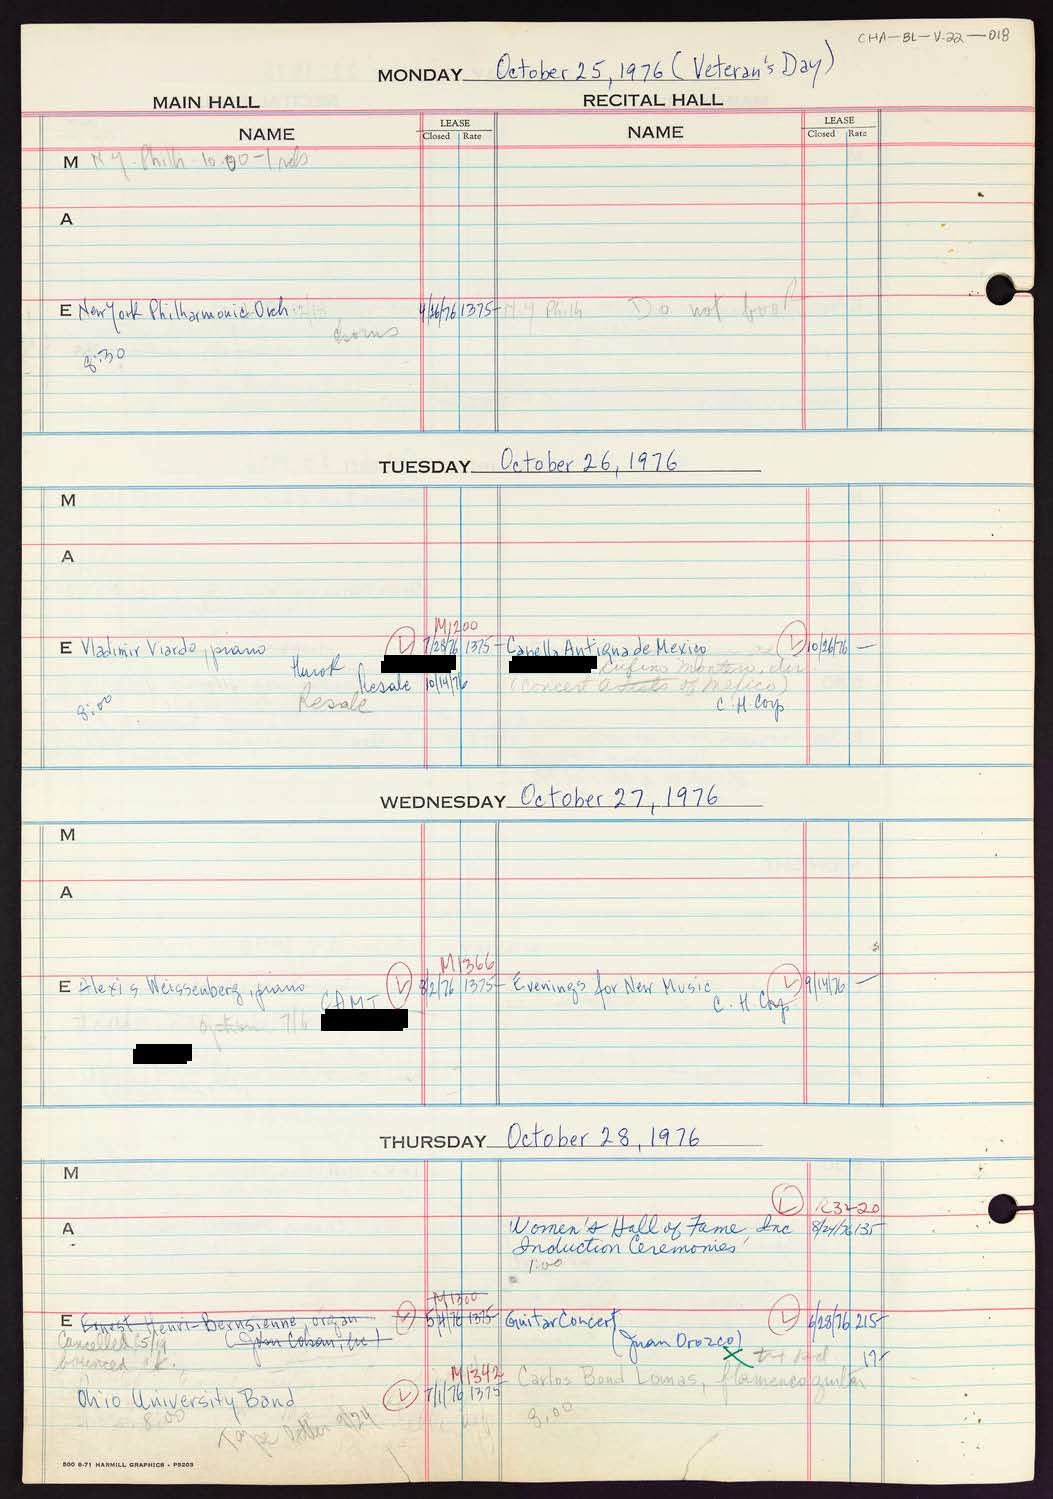 CHA-BL-V-22-018
MONDAY October 25, 1976 (Veteran's Day)
MAIN HALL
RECITAL HALL
NAME
LEASE
Closed Rate
NAME
LEASE
Closed Rate
M N Y Phil 10:00-1
A
E New York Philharmonic Orch 4/26/76 1375- N.Y Phil Do not book
chorus
8:30
TUESDAY October 26, 1976
M
A
M1200
E Vladimir Viardo, piano L 7/28/76 1375- Capella Antigua de Mexico L 10/26/76 —
Hurok
Resale 10/14/76 (Concert Artists of Mexico)
Resale
8:00
C. H. Corp
WEDNESDAY October 27, 1976
M
A
M1366
E Alexis Weissenberg, piano L 8/2/76 1375- Evenings for New Music L 9/14/76 —
CAMI
C. H. Corp
option 7/6
THURSDAY October 28, 1976
M
L R3420
A Women's Hall of Fame, Inc 8/24/76 135
Induction Ceremonies
1:00
M1300
E Ernest Henri-Bernsienne, organ L 5/4/76 1375- Guitar Concert L 6/28/76 215-
Cancelled 5/19 (John Colsan, Inc) (Juan Orozco)
bounced ck. X
17-
M1342 Carlos Bond Lomas, flamenco guitar
Ohio University Band L 7/1/76 1375
8:00
8:00
Tape
500 8-71 HARMILL GRAPHICS - P5203